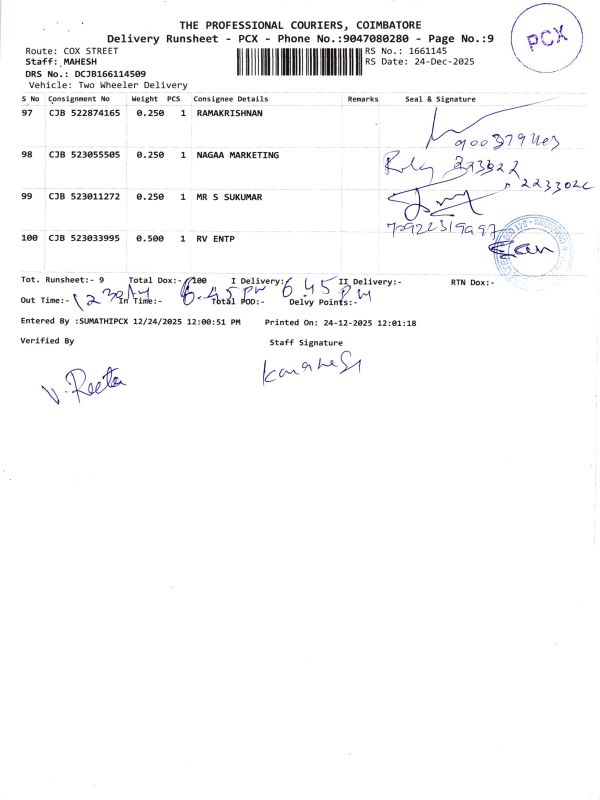 THE PROFESSIONAL COURIERS, COIMBATORE
Delivery Runsheet - PCX - Phone No.:9047080280 - Page No.:9
PCX
Route: COX STREET RS No.: 1661145
Staff: MAHESH RS Date: 24-Dec-2025
DRS No.: DCJB166114509
Vehicle: Two Wheeler Delivery
S No Consignment No Weight PCS Consignee Details Remarks Seal & Signature
97 CJB 522874165 0.250 1 RAMAKRISHNAN
98 CJB 523055505 0.250 1 NAGAA MARKETING
99 CJB 523011272 0.250 1 MR S SUKUMAR
100 CJB 523033995 0.500 1 RV ENTP
Tot. Runsheet:- 9 Total Dox:- 100 I Delivery:- 6.45 PM II Delivery:- RTN Dox:-
Out Time:- In Time:- 6.45 PM Total POD:- Delvy Points:-
Entered By :SUMATHIPCX 12/24/2025 12:00:51 PM Printed On: 24-12-2025 12:01:18
Verified By Staff Signature
V. Reeta